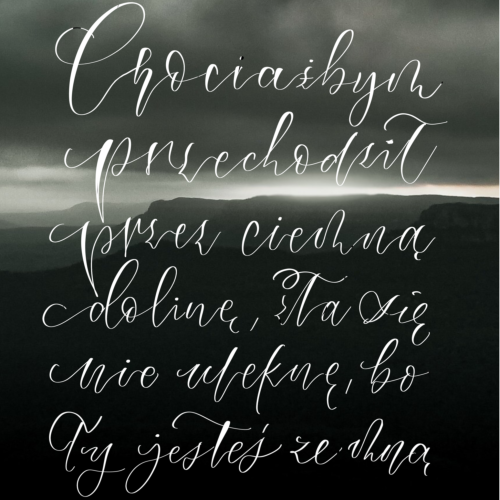 Chociażbym
przechodził
przez ciemną
dolinę, zła się
nie ulęknę, bo
Ty jesteś ze mną